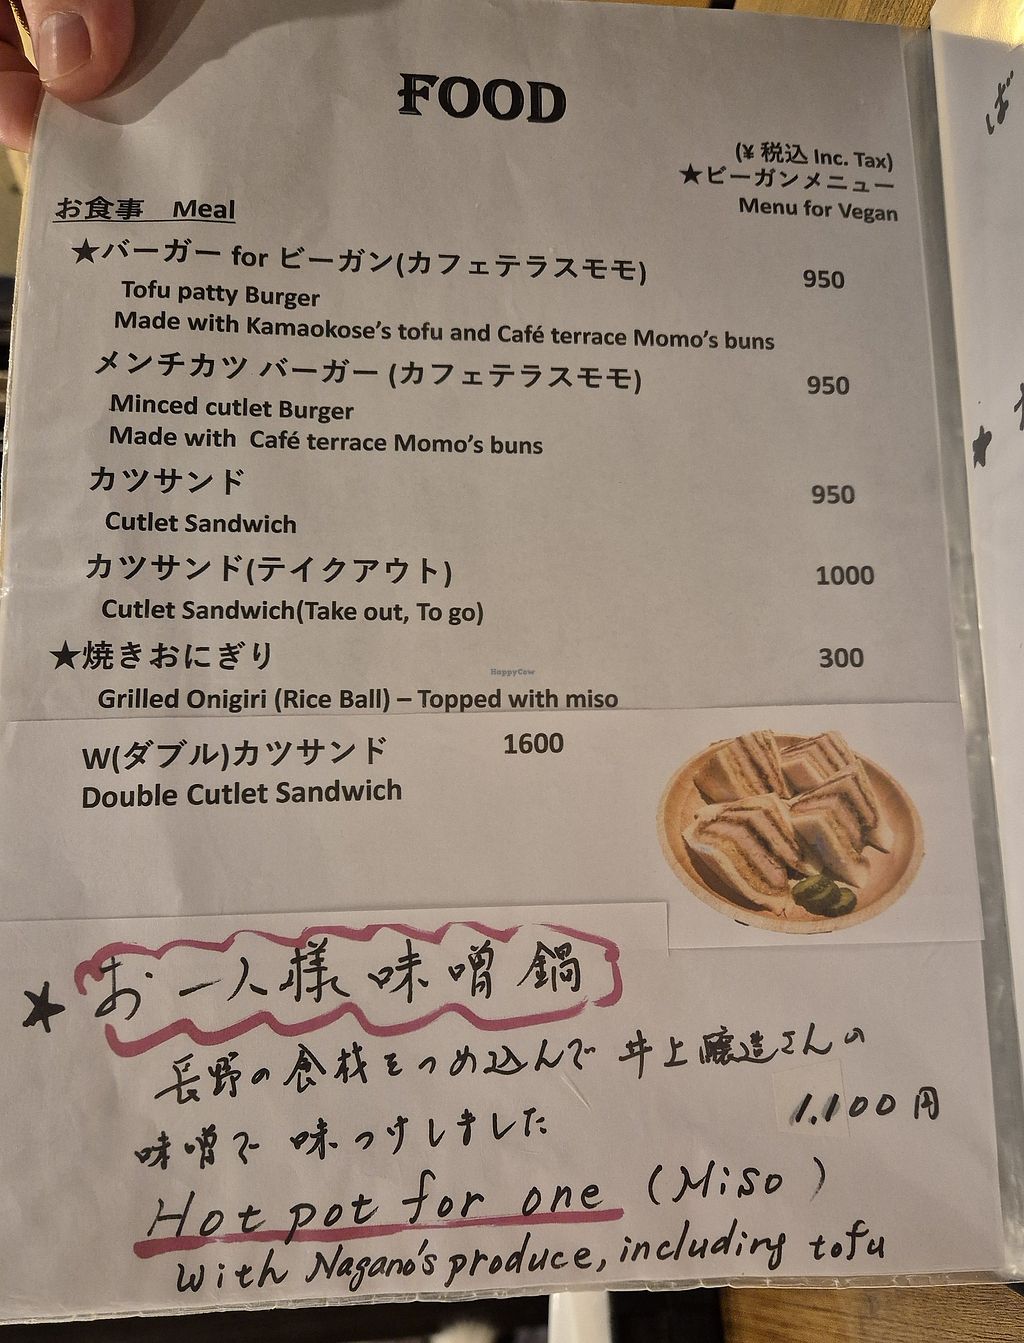 FOOD
(¥ 税込 Inc. Tax)
★ビーガンメニュー
Menu for Vegan
お食事 Meal
★バーガー for ビーガン(カフェテラスモモ) 950
Tofu patty Burger
Made with Kamaokose's tofu and Café terrace Momo's buns
メンチカツ バーガー (カフェテラスモモ) 950
Minced cutlet Burger
Made with Café terrace Momo's buns
カツサンド 950
Cutlet Sandwich
カツサンド(テイクアウト) 1000
Cutlet Sandwich(Take out, To go)
★焼きおにぎり 300
Grilled Onigiri (Rice Ball) – Topped with miso
HappyCow
W(ダブル)カツサンド 1600
Double Cutlet Sandwich
★ お一人様 味噌鍋
長野の食材をつめ込んで 井上醸造さんの
味噌で 味つけしました 1.100円
Hot pot for one (Miso)
With Nagano's produce, including tofu
ば
★